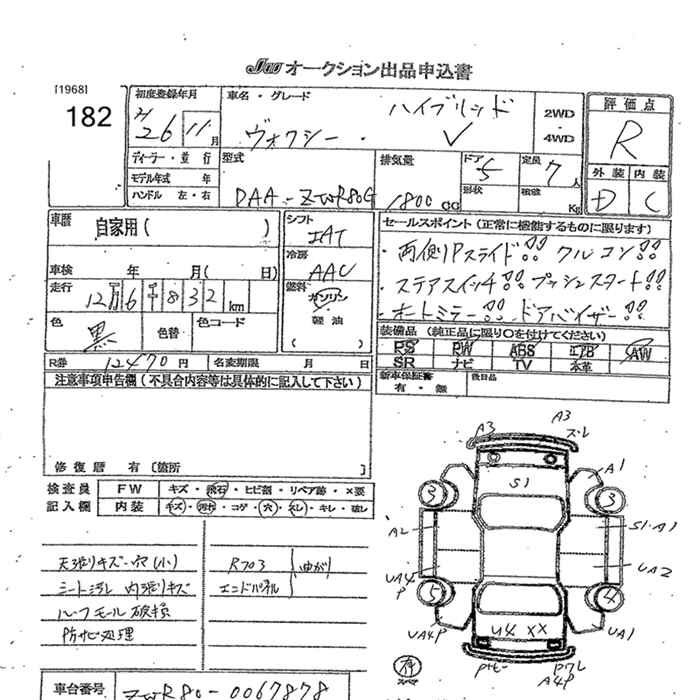 JU オークション出品申込書
[1968]
182
初度登録年月
H 26 11 月
車名・グレード
ハイブリッド
ヴォクシー・ V
2WD
・
4WD
評価点
R
外装 内装
D C
ディーラー・並行
モデル年式 年
ハンドル 左・右
型式
DAA-ZWR80G
排気量
1800 cc
ドア
5
形状
定員
7 人
積載
Kg
車歴
自家用( )
車検 年 月( 日)
走行
12万6千832km
色
黒
色替
色コード
シフト
IAT
冷房
AAC
燃料
ガソリン
軽油
( )
セールスポイント(正常に機能するものに限ります)
・両側Pスライド!! クルコン!!
・ステアスイッチ!! プッシュスタート!!
・オートミラー!! ドアバイザー!!
装備品(純正品に限り○を付けてください)
PS PW ABS エアB AW
SR ナビ TV 本革
新車保証書
有・無
後日品
R券 12470円
名変期限 月 日
注意事項申告欄(不具合内容等は具体的に記入して下さい)
修復歴 有〔箇所 〕
検査員
記入欄
FW
キズ・飛石・ヒビ割・リペア跡・×要
内装
キズ・汚れ・コゲ・穴・スレ・キレ・破レ
天張りキズ・穴(小)
シート汚レ 内張りキズ
ルーフモール破損
防サビ処理
Rフロア
エンドパネル
曲がり
A3
A3
ズレ
S1
A1
3
3
A2
S1・A1
UA4
P
UA2
5
4
UA4P
U4 XX
UA1
Pサビ
Pワレ
A4P
スペア
車台番号
ZWR80-0067878